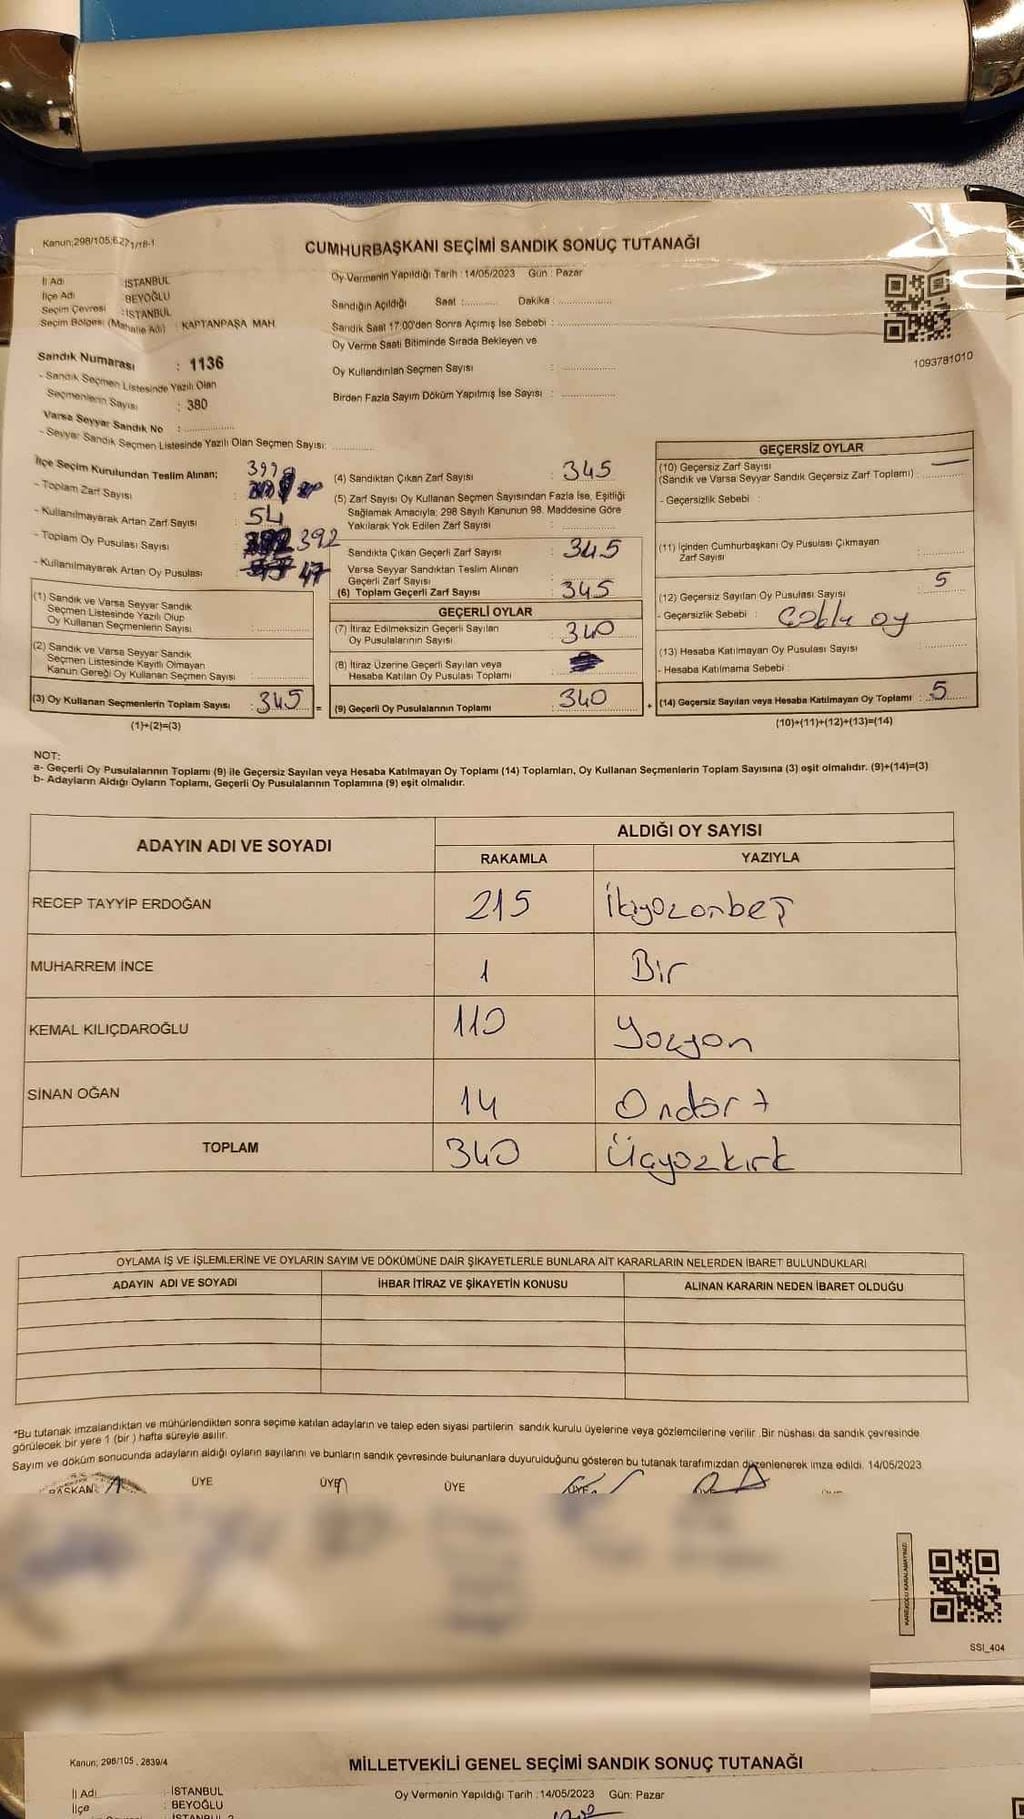 Kanun;298/105;6271/18-1
CUMHURBAŞKANI SEÇİMİ SANDIK SONUÇ TUTANAĞI
İl Adı : İSTANBUL
İlçe Adı : BEYOĞLU
Seçim Çevresi : İSTANBUL
Seçim Bölgesi (Mahalle Adı) : KAPTANPAŞA MAH
Oy Vermenin Yapıldığı Tarih : 14/05/2023 Gün : Pazar
Sandığın Açıldığı Saat :........... Dakika : ..............
Sandık Saat 17:00'den Sonra Açımış İse Sebebi : ..............
Oy Verme Saati Bitiminde Sırada Bekleyen ve
Oy Kullandırılan Seçmen Sayısı : ..............
Birden Fazla Sayım Döküm Yapılmış İse Sayısı : ..............
1093781010
Sandık Numarası : 1136
- Sandık Seçmen Listesinde Yazılı Olan
Seçmenlerin Sayısı : 380
Varsa Seyyar Sandık No : ..............
- Seyyar Sandık Seçmen Listesinde Yazılı Olan Seçmen Sayısı: ..............
İlçe Seçim Kurulundan Teslim Alınan;
- Toplam Zarf Sayısı : 399
- Kullanılmayarak Artan Zarf Sayısı : 54
- Toplam Oy Pusulası Sayısı : 392
- Kullanılmayarak Artan Oy Pusulası : 47
(1) Sandık ve Varsa Seyyar Sandık
Seçmen Listesinde Yazılı Olup
Oy Kullanan Seçmenlerin Sayısı : ..............
(2) Sandık ve Varsa Seyyar Sandık
Seçmen Listesinde Kayıtlı Olmayan
Kanun Gereği Oy Kullanan Seçmen Sayısı : ..............
(3) Oy Kullanan Seçmenlerin Toplam Sayısı : 345 =
(1)+(2)=(3)
(4) Sandıktan Çıkan Zarf Sayısı : 345
(5) Zarf Sayısı Oy Kullanan Seçmen Sayısından Fazla İse, Eşitliği
Sağlamak Amacıyla; 298 Sayılı Kanunun 98. Maddesine Göre
Yakılarak Yok Edilen Zarf Sayısı : ..............
Sandıkta Çıkan Geçerli Zarf Sayısı : 345
Varsa Seyyar Sandıktan Teslim Alınan
Geçerli Zarf Sayısı : ..............
(6) Toplam Geçerli Zarf Sayısı : 345
GEÇERLİ OYLAR
(7) İtiraz Edilmeksizin Geçerli Sayılan
Oy Pusulalarının Sayısı : 340
(8) İtiraz Üzerine Geçerli Sayılan veya
Hesaba Katılan Oy Pusulası Toplamı
(9) Geçerli Oy Pusulalarının Toplamı : 340 +
GEÇERSİZ OYLAR
(10) Geçersiz Zarf Sayısı
(Sandık ve Varsa Seyyar Sandık Geçersiz Zarf Toplamı) : —
- Geçersizlik Sebebi :
(11) İçinden Cumhurbaşkanı Oy Pusulası Çıkmayan
Zarf Sayısı : ..............
(12) Geçersiz Sayılan Oy Pusulası Sayısı : 5
- Geçersizlik Sebebi : Çoklu oy
(13) Hesaba Katılmayan Oy Pusulası Sayısı : ..............
- Hesaba Katılmama Sebebi :
(14) Geçersiz Sayılan veya Hesaba Katılmayan Oy Toplamı : 5
(10)+(11)+(12)+(13)=(14)
NOT:
a- Geçerli Oy Pusulalarının Toplamı (9) ile Geçersiz Sayılan veya Hesaba Katılmayan Oy Toplamı (14) Toplamları, Oy Kullanan Seçmenlerin Toplam Sayısına (3) eşit olmalıdır. (9)+(14)=(3)
b- Adayların Aldığı Oyların Toplamı, Geçerli Oy Pusulalarının Toplamına (9) eşit olmalıdır.
ADAYIN ADI VE SOYADI ALDIĞI OY SAYISI
RAKAMLA YAZIYLA
RECEP TAYYİP ERDOĞAN 215 İkiyüzonbeş
MUHARREM İNCE 1 Bir
KEMAL KILIÇDAROĞLU 110 Yüzyon
SİNAN OĞAN 14 Ondört
TOPLAM 340 Üçyüzkırk
OYLAMA İŞ VE İŞLEMLERİNE VE OYLARIN SAYIM VE DÖKÜMÜNE DAİR ŞİKAYETLERLE BUNLARA AİT KARARLARIN NELERDEN İBARET BULUNDUKLARI
ADAYIN ADI VE SOYADI İHBAR İTİRAZ VE ŞİKAYETİN KONUSU ALINAN KARARIN NEDEN İBARET OLDUĞU
*Bu tutanak imzalandıktan ve mühürlendikten sonra seçime katılan adayların ve talep eden siyasi partilerin sandık kurulu üyelerine veya gözlemcilerine verilir. Bir nüshası da sandık çevresinde
görülecek bir yere 1 (bir ) hafta süreyle asılır.
Sayım ve döküm sonucunda adayların aldığı oyların sayılarını ve bunların sandık çevresinde bulunanlara duyurulduğunu gösteren bu tutanak tarafımızdan düzenlenerek imza edildi. 14/05/2023
BAŞKAN ÜYE ÜYE ÜYE ÜYE
KAREKODU KARALAMAYINIZ!
SSI_404
Kanun; 298/105 , 2839/4
MİLLETVEKİLİ GENEL SEÇİMİ SANDIK SONUÇ TUTANAĞI
İl Adı : İSTANBUL
İlçe : BEYOĞLU
Oy Vermenin Yapıldığı Tarih : 14/05/2023 Gün: Pazar